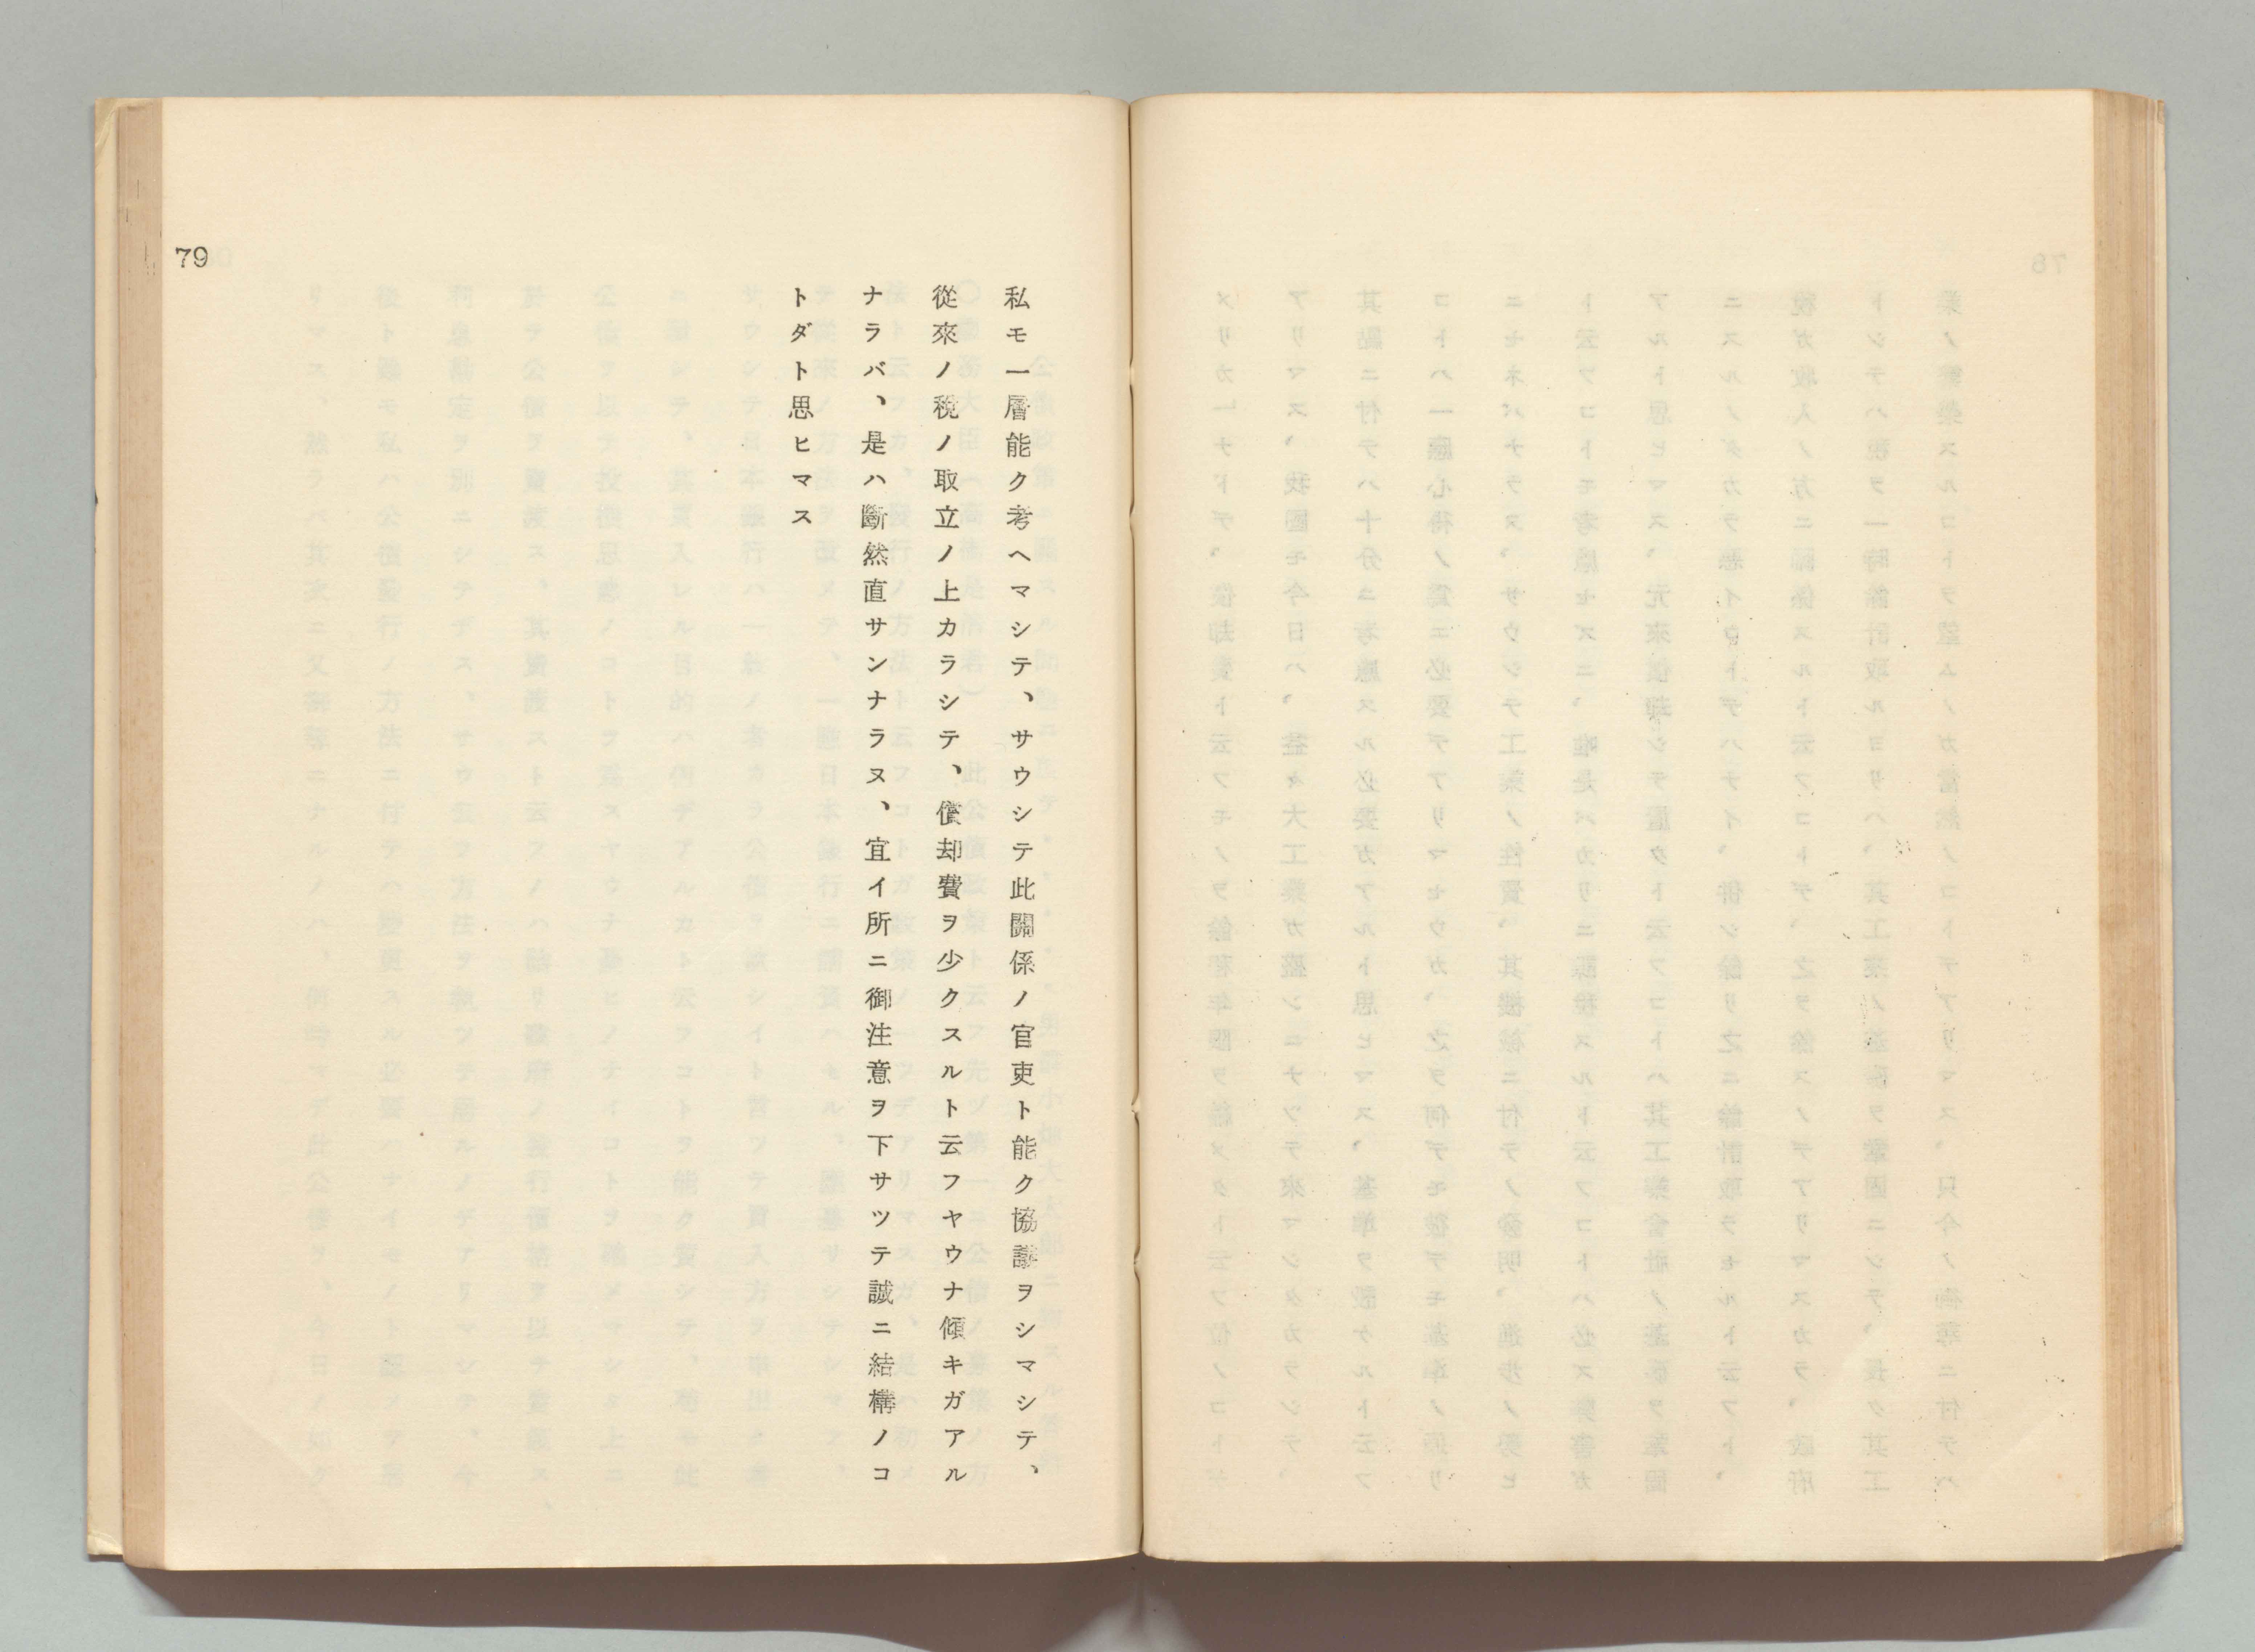 私モ一層能ク考ヘマシテ、サウシテ此關係ノ官吏ト能ク協議ヲシマシテ、
從來ノ稅ノ取立ノ上カラシテ、償却費ヲ少クスルト云フヤウナ傾キガアル
ナラバ、是ハ斷然直サンナラヌ、宜イ所ニ御注意ヲ下サツテ誠ニ結構ノコ
トダト思ヒマス
79